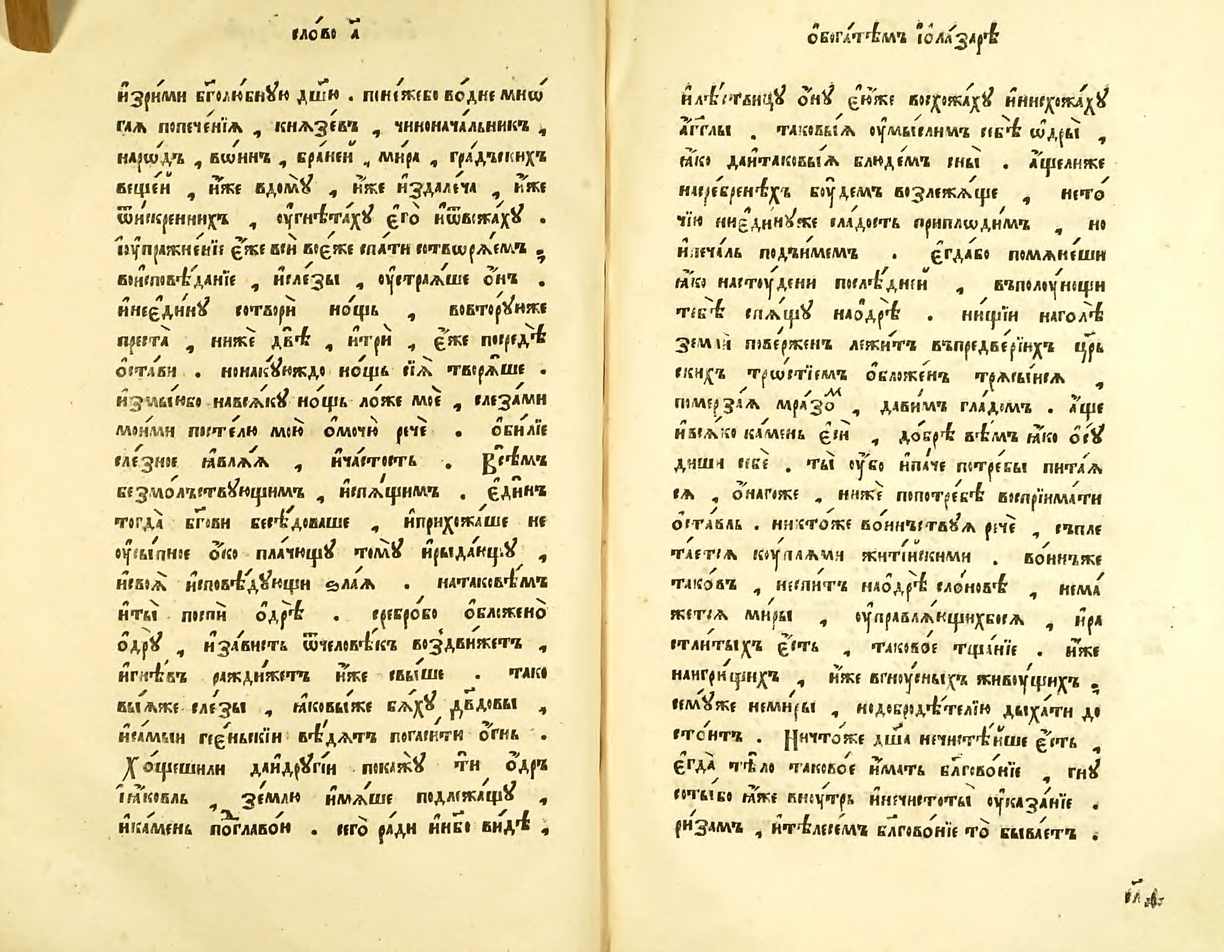 сло́во а҃
и҆зри́ми бг҃олю́бнꙋю дш҃ю . поне́жебо во́дне мнѡ
гаѧ попече́нїѧ , кнѧзе́въ , чинонача́льникъ ,
наро́дъ , во́инъ , бра́ней , ми́ра , гра́дъскихъ
веще́й , и҆́же вдомꙋ̀ , и҆́же и҆здале́ча , и҆́же
ѿи҆́скреннихъ , ᲂу҆гнѣта́хꙋ є҆го̀ и҆ѿвсю́дꙋ .
и҆ᲂу҆пражне́нїе є҆́же всѝ воє҆́же спа́ти сотворѧ́емъ ,
воисповѣ́данїе , и҆сле́зы , ᲂу҆строѧ́ше ѻ҆́нъ .
и҆неє҆ди́нꙋ сотворѝ но́щь , вовторꙋ́юже
преста̀ , нижѐ двѣ̀ , и҆трѝ , є҆́же посредѣ̀
ѡ҆ста́ви . нонакꙋ́юждо но́щь сїѧ̀ творѧ́ше .
и҆змы́юбо навсѧ́кꙋ но́щь ло́же моѐ , слеза́ми
мои́ми посте́лю мою̀ ѡ҆мочю̀ речѐ . ѻ҆би́лїе
сле́зное ꙗ҆влѧ́ѧ , и҆ча́стость . Всѣ́мъ
безмо́лъствꙋющимъ , и҆спѧ́щимъ . є҆ди́нъ
тогда̀ бг҃ови бесѣ́доваше , и҆прихожа́ше не
ᲂу҆сы́пное ѻ҆́ко пла́чющꙋ томꙋ̀ и҆рыда́ющꙋ ,
и҆своѧ̀ и҆сповѣ́дꙋющи ѕла́ѧ . натаковѣ́мъ
и҆ты̀ поспѝ ѻ҆дрѣ̀ . сребро́бо ѡ҆бложено̀
ѻ҆дрꙋ̀ , и҆за́висть ѿчеловѣ́къ воздви́жетъ ,
и҆гнѣ́въ ражди́жетъ и҆́же свы́ше . тако
вы́ѧже сле́зы , ꙗ҆ковы́же бѧ́хꙋ дв҃довы ,
и҆са́мыи гее́ньскїи вѣ́дѧтъ погаси́ти ѻ҆́гнь .
Хо́щешили да́идрꙋгїи покажꙋ̀ ти ѻ҆́дръ
і҆а́ковль , зе́млю и҆мѧ́ше подлежа́щꙋ ,
и҆ка́мень поⷣглаво́ю . сего̀ ра́ди и҆и҆́бо ви́дѣ ,
ѡ҆бога́тѣмъ і҆ѡла́зарѣ
и҆лѣ́ствицꙋ ѻ҆́нꙋ є҆ю́же восхожа́хꙋ и҆нисхожа́хꙋ
а҆́гг҃лы . таковы́ѧ ᲂу҆мы́слимъ себѣ̀ ѻ҆дры̀ ,
ꙗ҆́ко даи҆таковы́ѧ блюде́мъ сны̀ . а҆́щелиже
насре́бренѣхъ бꙋ́демъ возлежа́ще , нето́
чїю ниє҆ди́нꙋже сла́дость приплоди́мъ , но
и҆печа́ль подъи́мемъ . є҆гда́бо помѧне́ши
ꙗ҆́ко настꙋ́дени послѣ́дней , въполꙋ́нощи
тебѣ̀ спѧ́щꙋ наѻ҆дрѣ̀ . ни́щїи наголѣ̀
землѝ пове́рженъ лежи́тъ въпредве́рїихъ цр҃ь
скихъ тро́стїемъ ѡ҆бложе́нъ трѧсы́исѧ ,
поме́рзаѧ мра́зоⷨ , дави́мъ гла́домъ . а҆́ще
и҆всѧ́ко ка́мень є҆сѝ , до́брѣ вѣ́мъ ꙗ҆́ко ѡ҆сꙋ́
диши себѐ . ты̀ ᲂу҆́бо и҆па́че потре́бы пита́ѧ
сѧ , ѻ҆на́гоже , нижѐ попотре́бѣ воспрїима́ти
ѡ҆ста́вль . никто́же во́инъствꙋѧ речѐ , съпле
та́етсѧ кꙋ́плѧми жите́йскими . во́инъже
тако́въ , неспи́тъ наѻ҆дрѣ̀ сло́новѣ , нема́
жетсѧ ми́ры , ᲂу҆правлѧ́ющихбосѧ , и҆ра
стли́тыхъ є҆́сть , таково́е тща́нїе . и҆́же
наигри́щихъ , и҆́же вгнꙋ́сныхъ живꙋ́щихъ ,
семꙋ́же неми́ры , нодобродѣ́телїю дыха́ти до
сто́итъ . Ничто́же дш҃а нечистѣ́йше є҆́сть ,
є҆гда̀ тѣ́ло таково́е и҆́мать бл҃гово́нїе , гнꙋ́
сотыбо ꙗ҆́же внꙋ́трь и҆нечистоты̀ ᲂу҆каза́нїе .
ри́замъ , и҆тѣлесе́мъ бл҃гово́нїе то̀ быва́етъ .